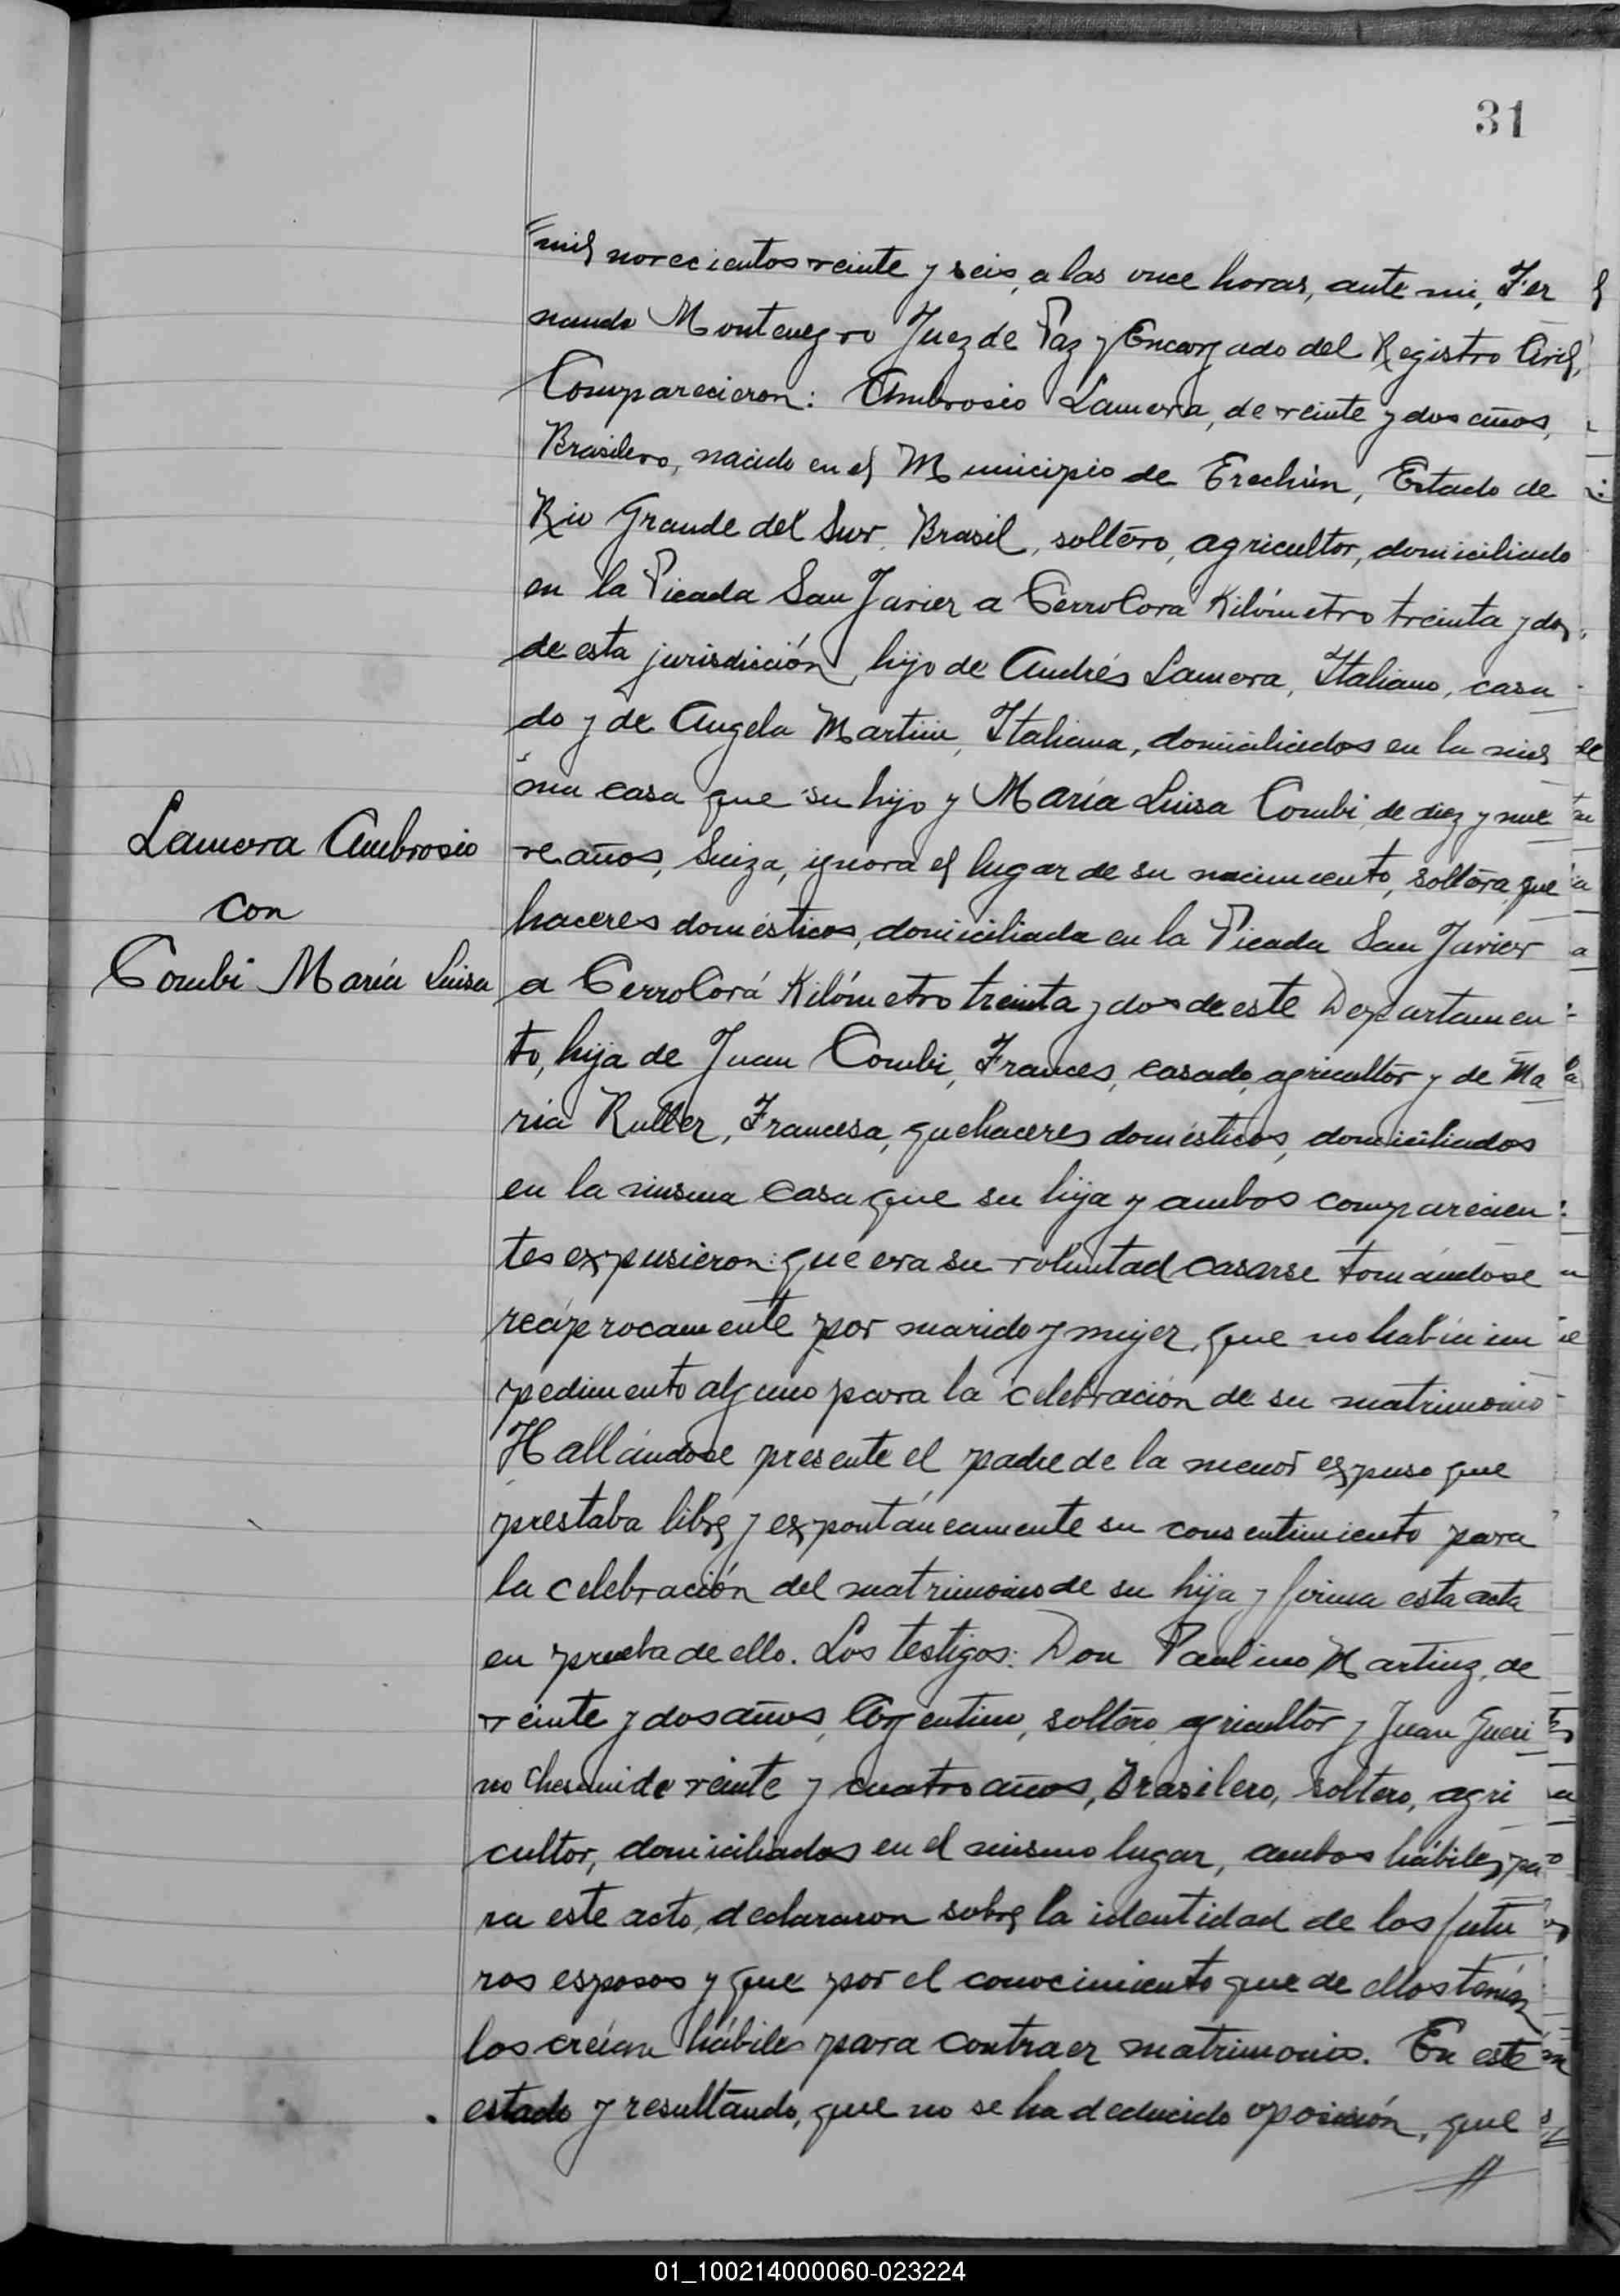 31
mil novecientos veinte y seis, a las once horas, ante mi, Fer
nando Montenegro Juez de Paz y Encargado del Registro Civil,
Comparecieron: Ambrosio Lamera, de veinte y dos años,
Brasilero, nacido en el Municipio de Erechin, Estado de
Rio Grande del Sur, Brasil, soltero, agricultor, domiciliado
en la Picada San Javier a Cerro Corá Kilómetro treinta y dos,
de esta jurisdicción, hijo de Andrés Lamera, Italiano, casa
do y de Angela Martini, Italiana, domiciliados en la mis
ma casa que su hijo y María Luisa Combi, de diez y nue
Lamera Ambrosio
con
Combi María Luisa
ve años, Suiza, ignora el lugar de su nacimiento, soltera, que
haceres domésticos, domiciliada en la Picada San Javier
a Cerro Corá Kilómetro treinta y dos de este Departamen
to, hija de Juan Combi, Frances, casado, agricultor y de Ma
ria Ruller, Francesa, quehaceres domésticos, domiciliados
en la misma casa que su hija y ambos comparecien
tes expusieron: que era su voluntad casarse tomándose
recíprocamente por marido y mujer, que no había im
pedimento alguno para la celebración de su matrimonio
Hallándose presente el padre de la menor expuso que
prestaba libre y expontáneamente su consentimiento para
la celebración del matrimonio de su hija y firma esta acta
en prueba de ello. Los testigos: Don Paulino Martinz, de
veinte y dos años, Argentino, soltero, agricultor y Juan Gueri
no de veinte y cuatro años, Brasilero, soltero, agri
cultor, domiciliados en el mismo lugar, ambos hábiles pa
ra este acto, declararon sobre la identidad de los futu
ros esposos y que por el conocimiento que de ellos tenían
los creían hábiles para contraer matrimonio. En este
estado y resultando, que no se ha deducido oposición, que
01_100214000060-023224